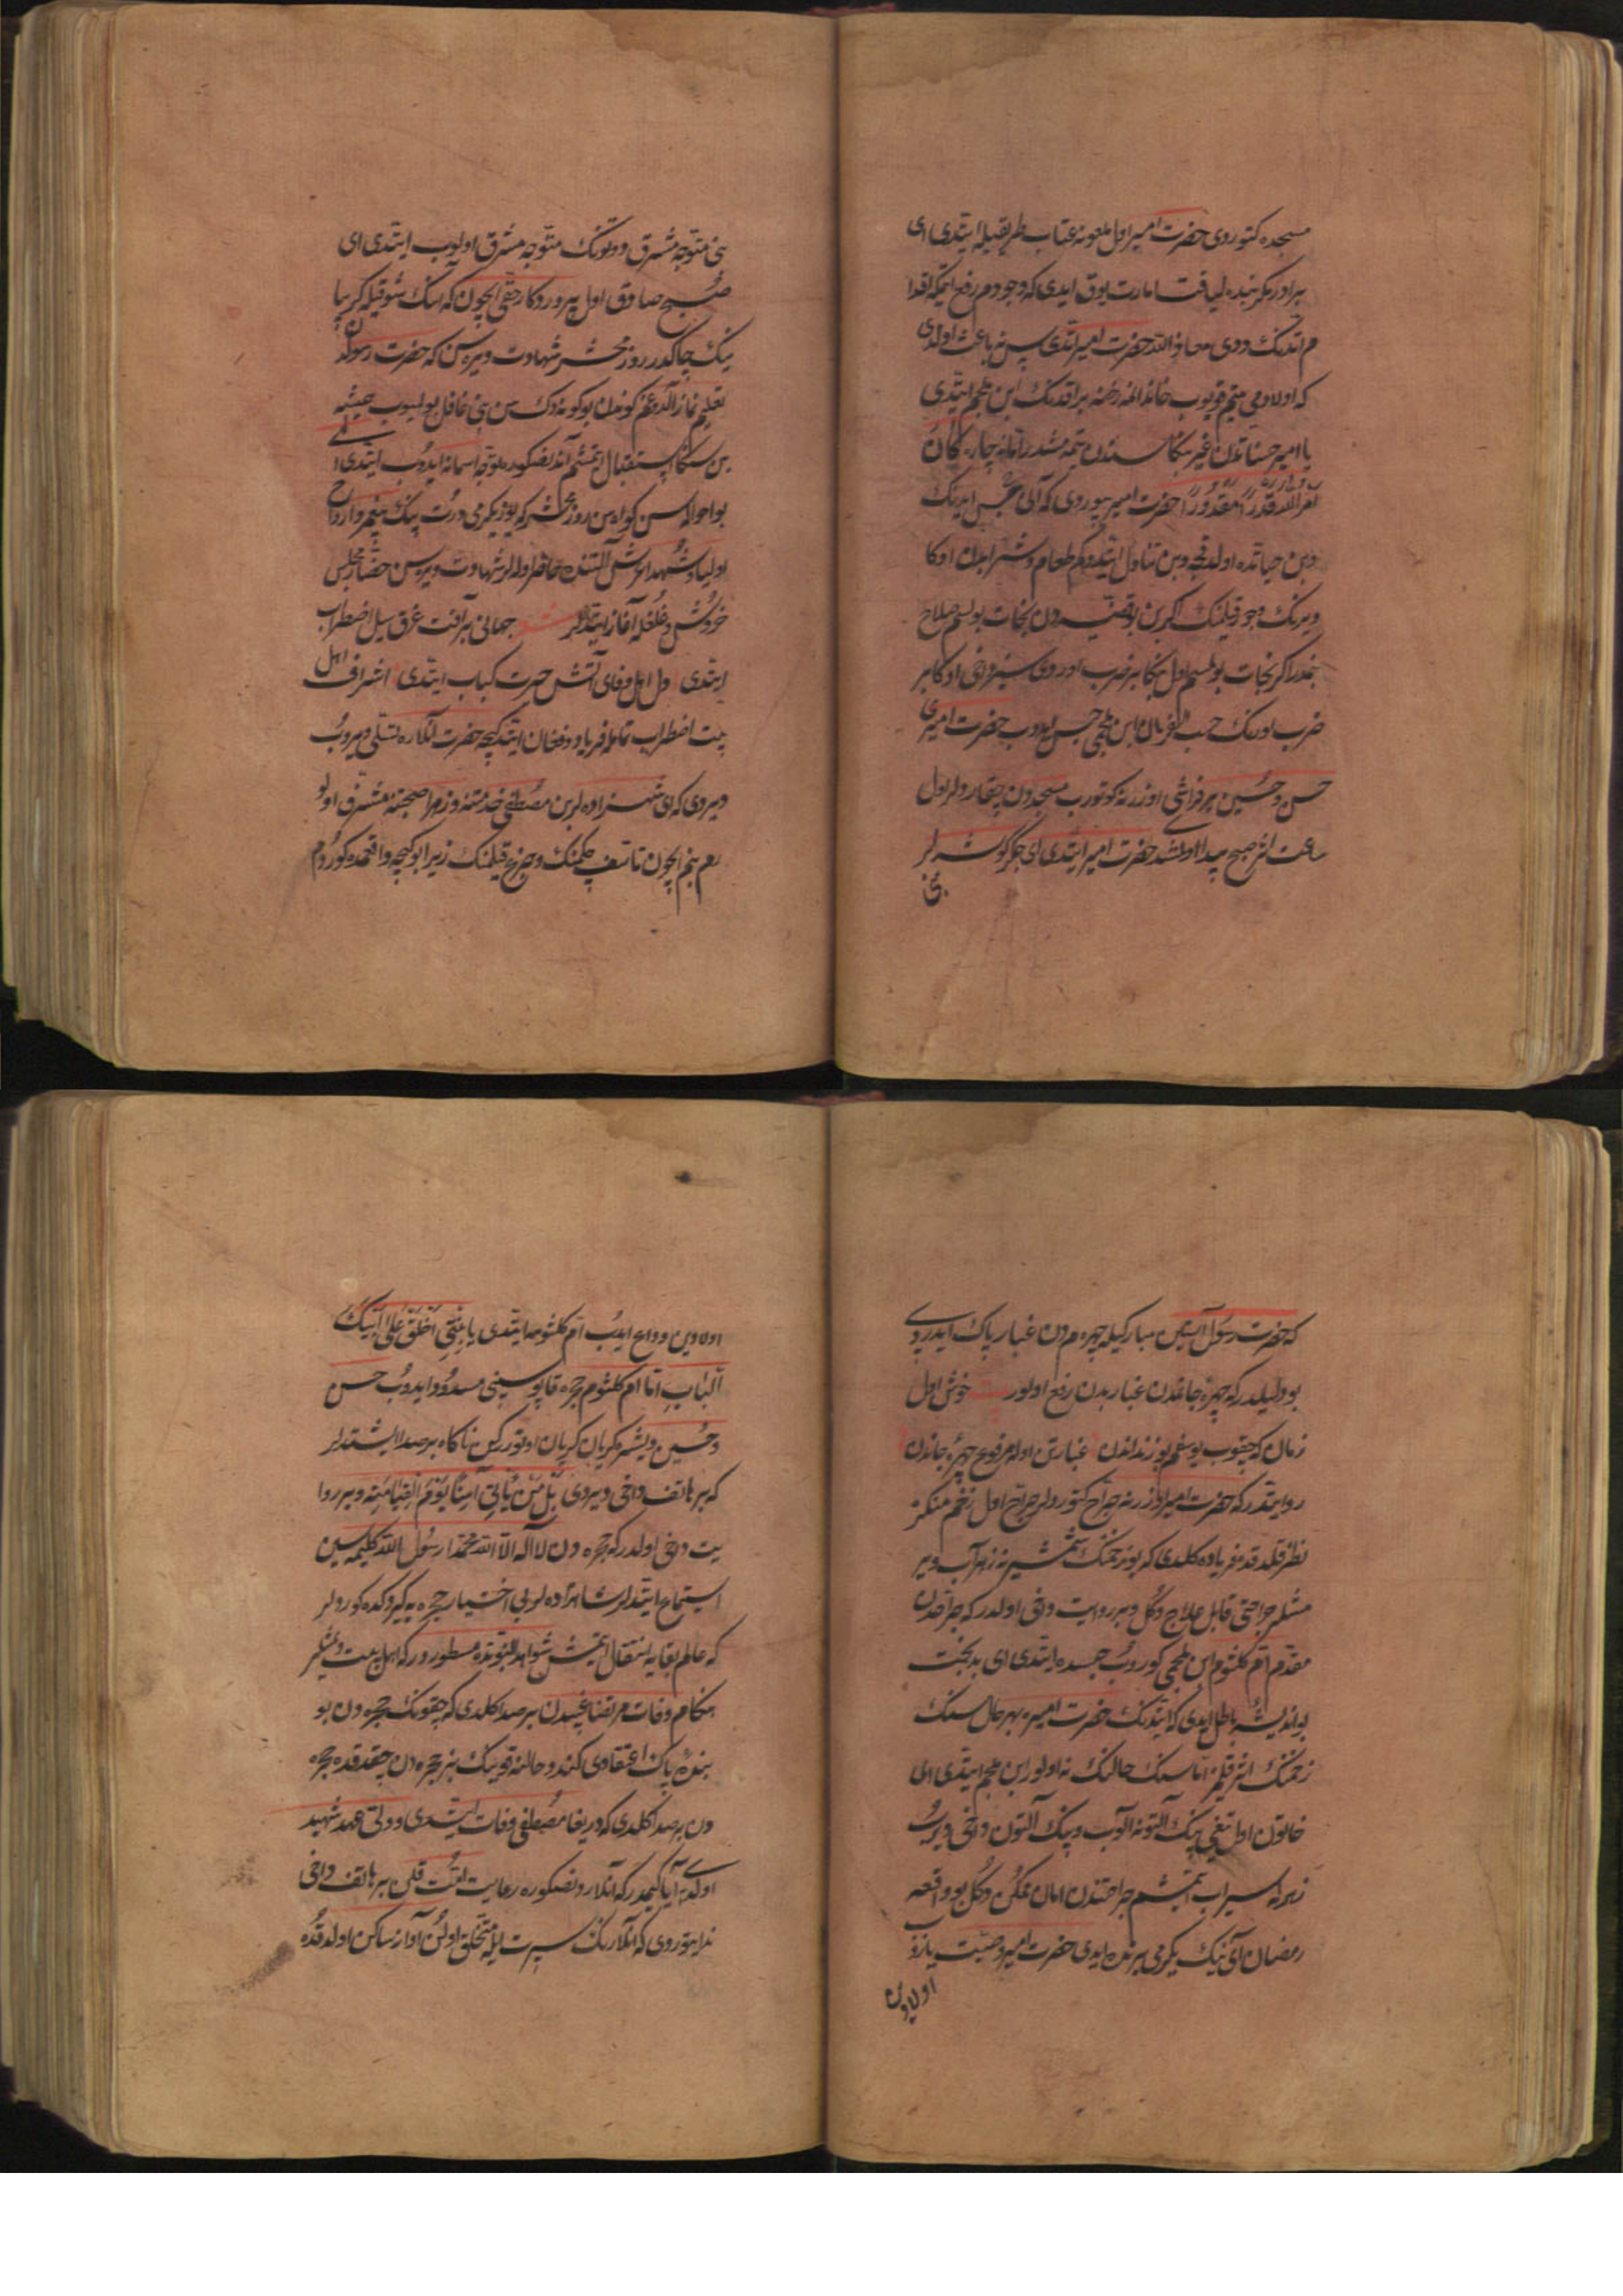 مسجده کتوردی حضرت امیر اول ملعونه عتاب طریقیله ایتدی ای
برادر مکر بنده لیاقت امارت یوق ایدی که وجودم رفع ایتمکه اقدا
م اتدنک ددی معاذ الله حضرت امیر اتدی پس نه باعث اولدی
که اولادمی یتیم قویوب خاندانمه رخنه براقدنک ابن ملجم ایتدی
یا امیر
امر الله قدرا مقدورا حضرت امیر بیوردی که آنی حبس ایدنک
وبن حیاتده اولدقجه وبن تناول ایتدوکم طعام و شرابدان اوکا
ویرنک وجور قیلمنک اکر بن بو قضیه دن نجات بولسم صلاح
بنمدر اکر نجات بولمسم اول بنکا بر ضرب اوردی سیز دخی اوکا بر
ضرب اورنک حسب الفرمان ابن ملجمی حبس ایدوب حضرت امیری
حسن و حسین بر فراش اوزرنه کوتورب مسجددن چقاردلر اول
ساعت اثر صبح پیدا اولمشدی حضرت امیر ایتدی ای جکر کوشه لر
بنی
بنی متوجه مشرق ددتونک متوجه مشرق اولوب ایتدی ای
صبح صادق اول پروردکار حقی ایچون که انک شوقیله کریبا
ننک چاکدر روز محشر شهادت ویره سن که حضرت رسولدن
تعلیم نماز آلدوغم کوندن بو کونه دک سن بنی غافل بولمیوب همیشه
بن سکا استقبال ایتمشم آندنصکره متوجه آسمان ایدوب ایتدی الهی
بو احواله سن کواه سن روز محشر که یوز یکرمی درت بیک پیغمبر و ارواح
اولیا و شهدا عرش آلتنده حاضر اولالر شهادت ویره سن حضار مجلس
خروش و غلغله آغاز ایتدیلر جهانی بر آفت غرق سیل اضطراب
ایتدی دل اهل وفای آتش حسرت کباب ایتدی اشراف اهل
بیت اضطراب تمامله فریاد و فغان ایتدکچه حضرت آنلاره تسلی ویروب
دیردی که ای شهزاده لر بن مصطفی خدمتنه و زهرا صحبتنه مشرف اولو
رم بنم ایچون تاسف چکمنک و جزع قیلمنک زیرا بو کیچه واقعمده کوردم
که حضرت رسول آستین مبارکیله چهره م دن غبار پاک ایدردی
بو دلیلدر که چهره جانمدن غبار بدن رفع اولور خوش اول
زمان که یعقوب یوسفم بو زنداندن غبار تن اوله مرفوع چهرهٔ جاندن
روایتدر که حضرت امیر اوزرنه جراح کتوردلر جراح اول زخم منکره
نظر قلدقده فریاده کلدی که بو زخمنک شمشیرنه زهر آب ویر
مشلر جراحتی قابل علاج دکل و بر روایت دخی اولدر که جراحدن
مقدم ام کلثوم ابن ملجمی کوروب حبسده ایتدی ای بدبخت
بو اندیشه باطل ایدی که ایتدنک حضرت امیره بهر حال سنک
زخمنک اثر قلمز اما سنک حالنک نه اولور ابن ملجم ایتدی ای
خاتون اول تیغی بیک آلتونه آلوب و بیک آلتون دخی ویروب
زهرله سیراب ایتمشم جراحتندن امان ممکن دکل بو واقعه
رمضان آی نیک یکرمی برنده ایدی حضرت امیر وصیت یازوب
اولادین
اولادین وداع ایدب ام کلثومه ایتدی یا بنتی اغلق علی ابیک
الباب اما ام کلثوم حجره قاپوسینی مسدود ایدوب حسن
و حسین و یشره کریان کریان اوتوررکن ناکاه بر صدا ایشتدلر
که بر هاتف دخی ویردی بل من یأتی آمنا یوم القیامته و بر روا
یت دخی اولدر که حجره دن لا اله الا الله محمدا رسول الله کلیمه سین
استماع ایتدلر شاهزاده لر بی اختیار حجره یه کیردکده کوردلر
که عالم بقایه انتقال ایتمش شواهد النبوتده مسطوردر که اهل بیت دیمشلر
هنکام وفات مرتضا غیبدن بر صدا کلدی که چقونک حجره دن بو
بندهٔ پاک اعتقادی کندو حالنه قوینک بز حجره دن چقدقده حجره
دن بر صدا کلدی که دریغا مصطفی وفات ایتدی و ولی عهد شهید
اولدی آیا کیمدر که آنلاردنصکره رعایت امت قلن بر هاتف دخی
ندا یتوردی که آنلارنک سیرت ایله متخلق اولن آواز ساکن اولدقده